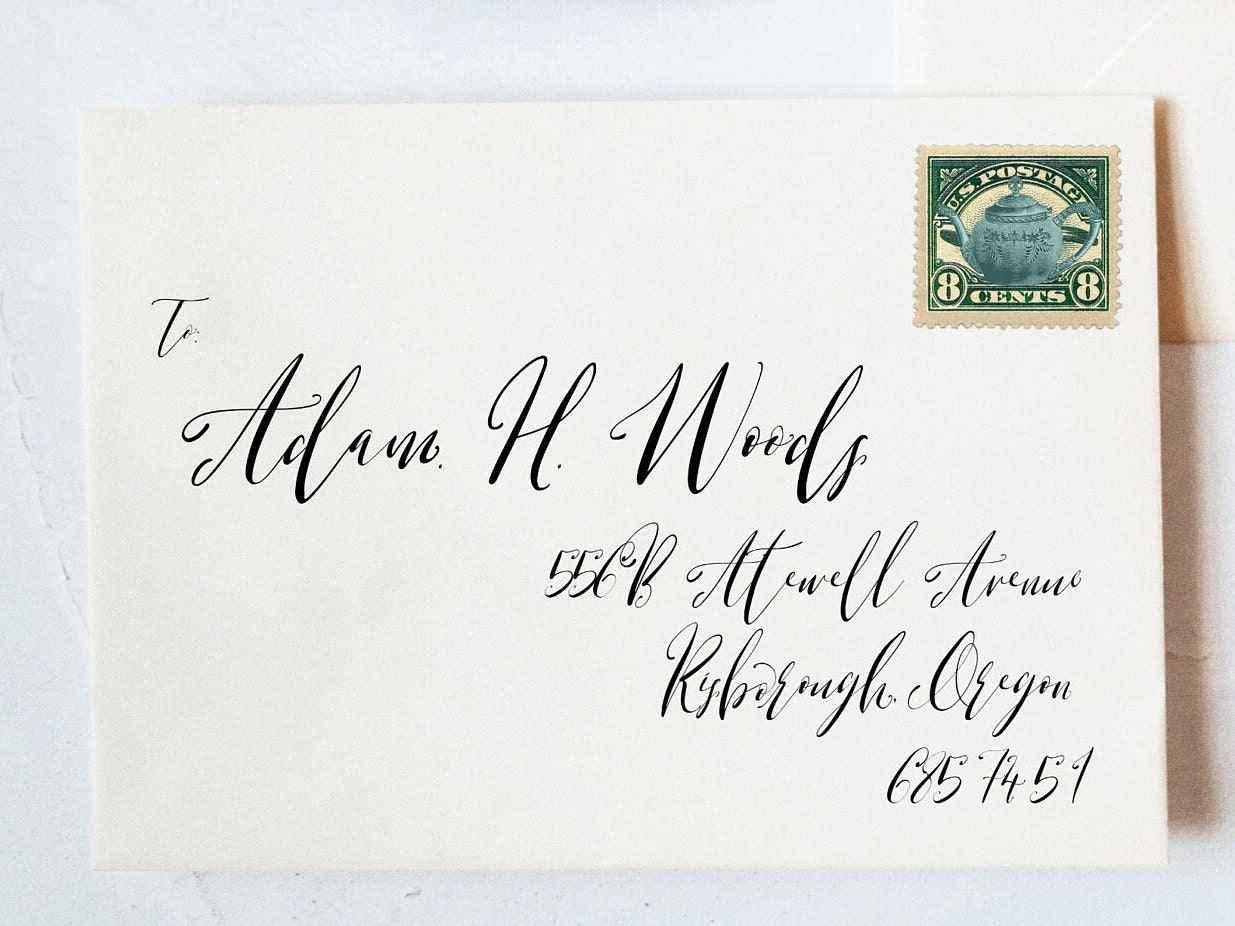 U.S. POSTAG
8 CENTS 8
To:
Adam. H. Woods
556B Atewell Avenue
Risborough, Oregon
6857451